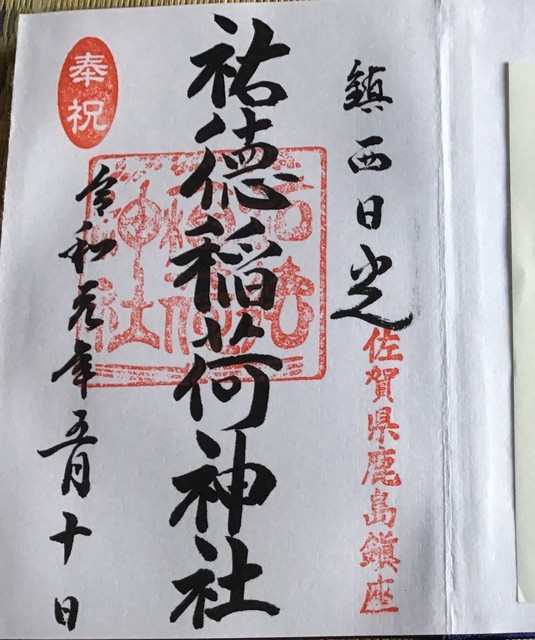 鎮西日光
佐賀県鹿島鎮座
祐徳稲荷神社
奉祝
令和元年五月十日